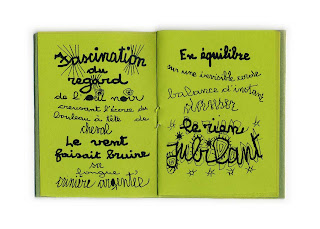 Fascination
du
regard
de l'œil noir
creusant l'écorce du
bouleau à tête de
cheval
Le vent
faisait bruire
sa
longue
crinière argentée
En équilibre
sur une invisible corde
balance d'instant
le rien
jubilant